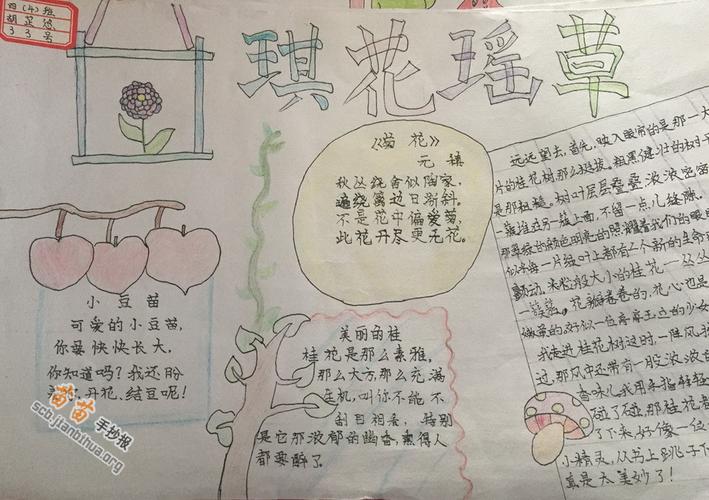 四(4)班
胡芷悠
33号
琪花瑶草
《菊花》
元稹
秋丛绕舍似陶家,
遍绕篱边日渐斜。
不是花中偏爱菊,
此花开尽更无花。
小豆苗
可爱的小豆苗,
你要快快长大,
你知道吗?我还盼
开花、结豆呢!
苗苗
手抄报
scb.jianbihua.org
美丽的桂
桂花是那么素雅,
那么大方,那么充满
生机,叫你不能不
刮目相看,特别
是它那浓郁的幽香,熏得人
都要醉了。
远远望去,首先,映入眼帘的是那一大
片的桂花树那么挺拔。粗黑健壮的树干
是那粗糙,树叶层层叠叠,浓浓密密
一簇堆在另一簇上面,不留一点儿缝隙。
那翠绿的颜色明亮的照耀着我们的眼睛
似乎每一片绿叶上都有一个新的生命
颤动。米粒般大小的桂花一丛丛
一簇簇。花瓣卷卷的,花心也是
嫩黄的好似一位亭亭玉立的少女
我走进桂花树这时,一阵风
过,那风中还带有一股浓浓
香味儿我用手指轻轻
碰了碰,那桂花
了下来好像一位
小精灵,从书上跳了下
真是太美妙了!